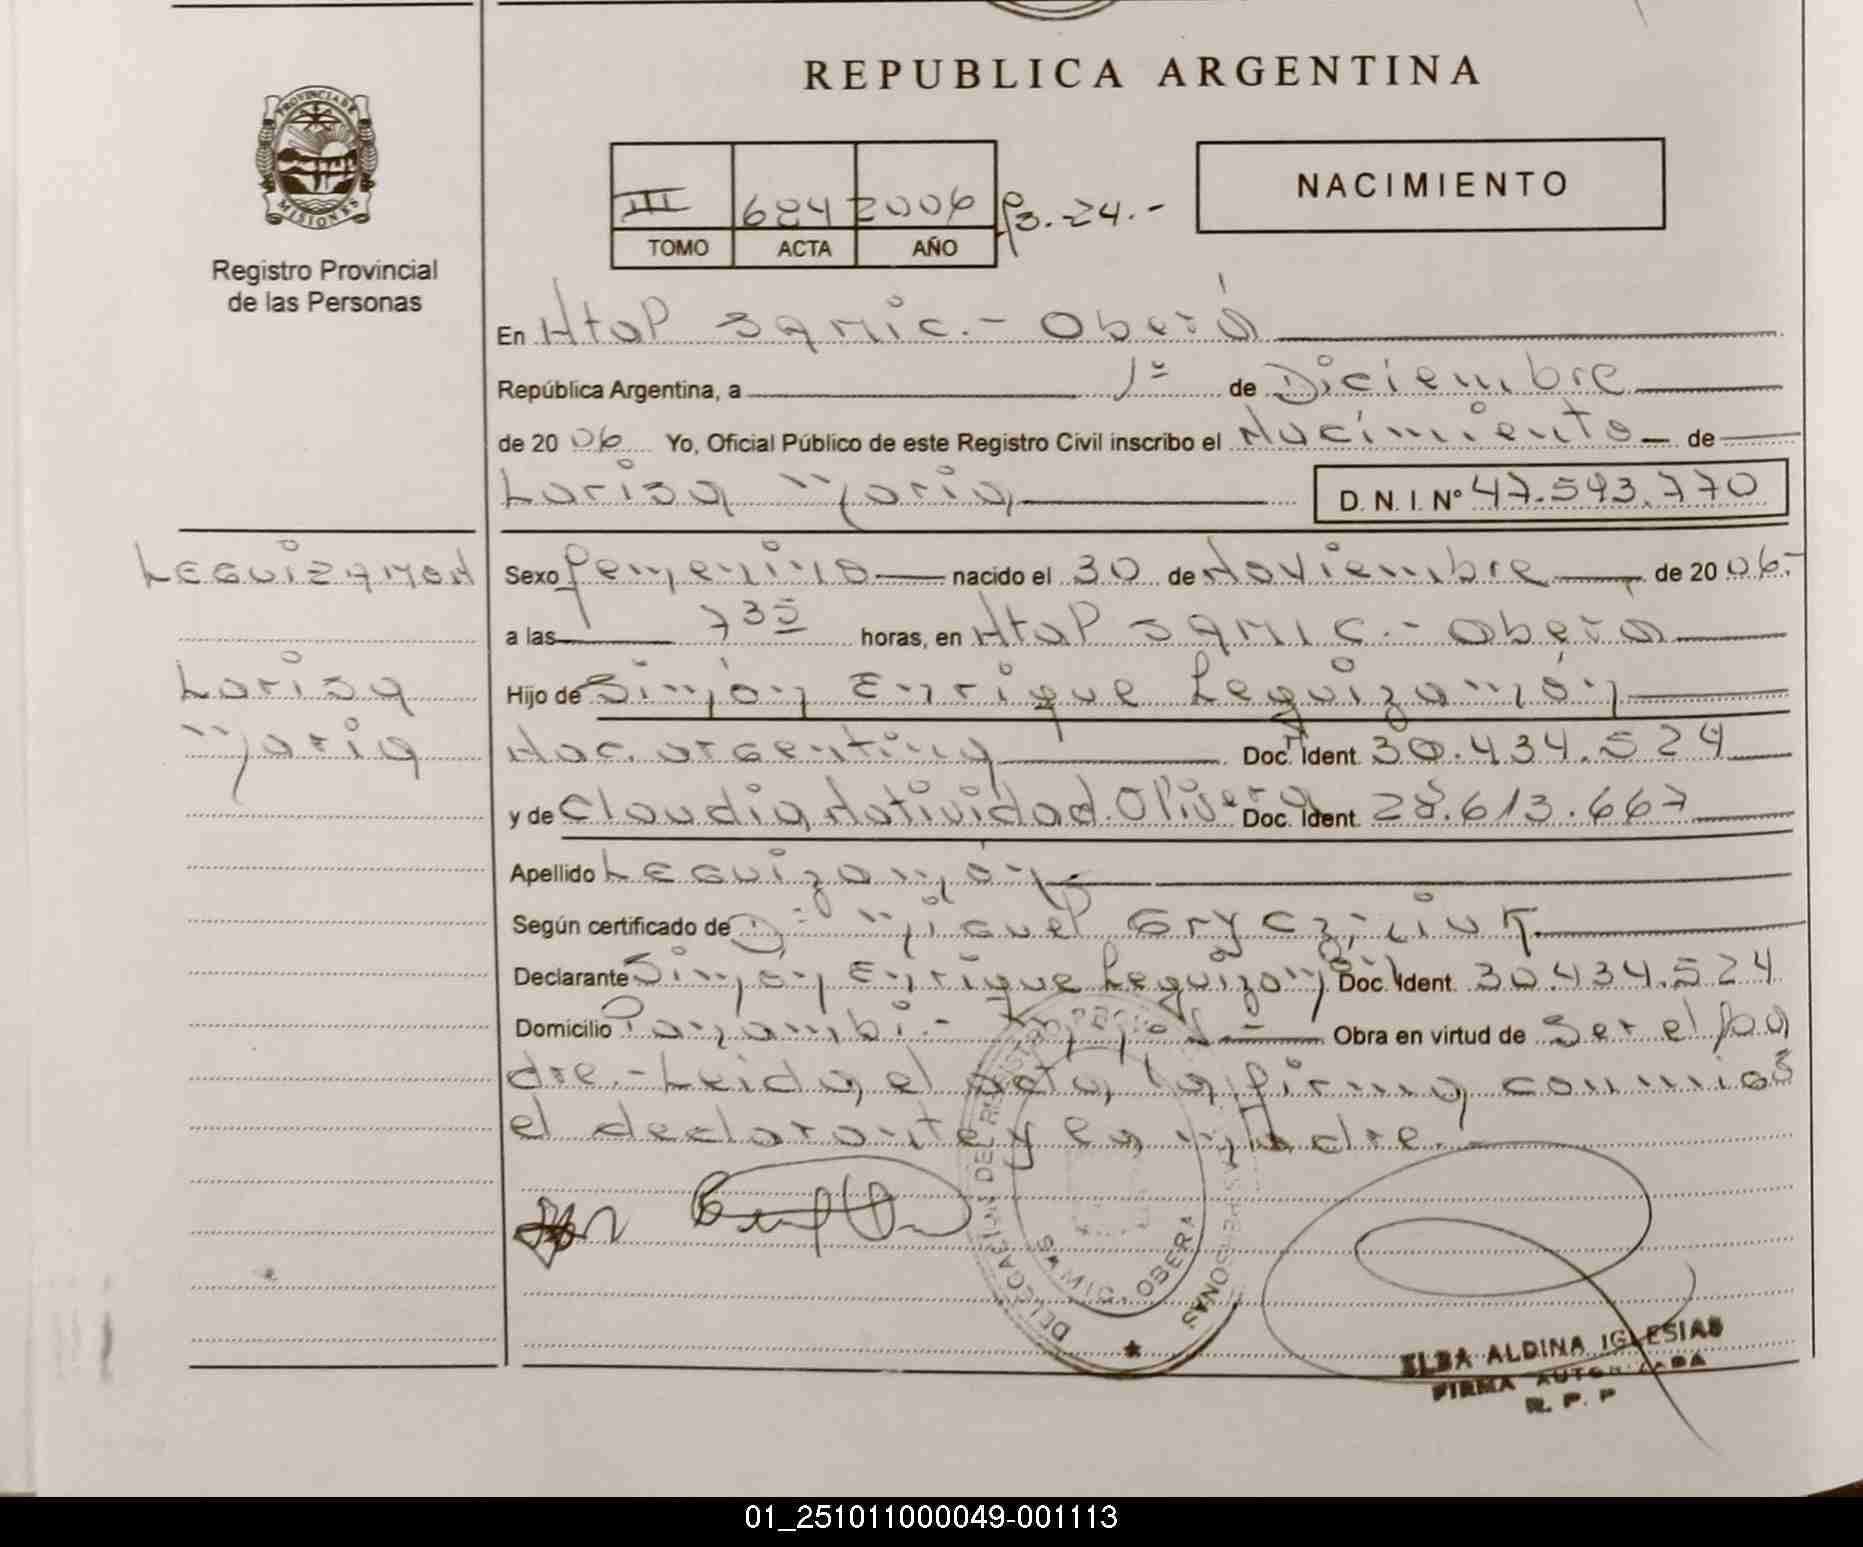 REPUBLICA ARGENTINA
PROVINCIA DE
MISIONES
Registro Provincial
de las Personas
III 684 2006 F3.24.-
TOMO ACTA AÑO
NACIMIENTO
En Htal Samic.- Oberá
República Argentina, a 1º de Diciembre
de 20 06 Yo, Oficial Público de este Registro Civil inscribo el Nacimiento de
Larisa Maria D. N. I. Nº 47.593.770
LEGUIZAMON
Sexo femenino nacido el 30 de Noviembre de 20 06.-
a las 7 35 horas, en Htal Samic.- Oberá
Larisa
Hijo de Simón Enrique Leguizamón
Maria
Nac. argentina Doc. Ident. 30.434.524
y de Claudia Natividad Olivera Doc. Ident. 28.613.667
Apellido Leguizamón
Según certificado de Dr Miguel
Declarante Simón Enrique Leguizamón Doc. Ident. 30.434.524
Domicilio Panambi.- Obra en virtud de Ser el pa
dre.- Leida el acta, la firma conmigo
el declarante y la madre.-
DELEGACION DEL REGISTRO PROV. DE LAS PERSONAS
OBERA
ELBA ALDINA IGLESIAS
FIRMA AUTORIZADA
R. P. P
01_251011000049-001113